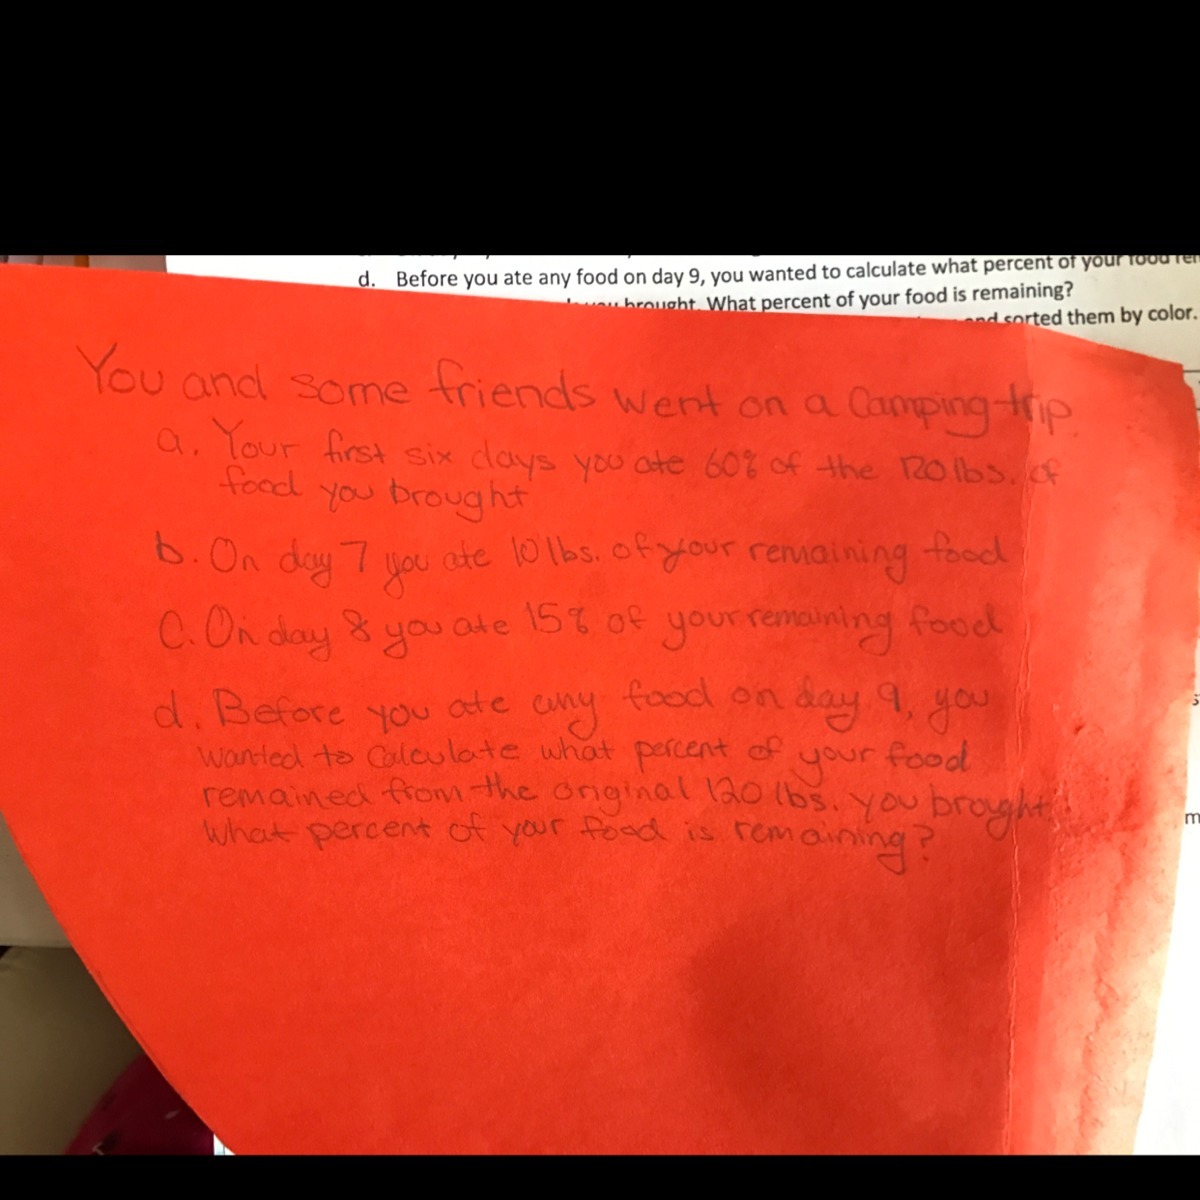 d. Before you ate any food on day 9, you wanted to calculate what percent of your food
brought. What percent of your food is remaining?
sorted them by color.
You and some friends went on a Camping trip
a. Your first six days you ate 60% of the 120 lbs. of
food you brought
b. On day 7 you ate 10 lbs. of your remaining food
C. On day 8 you ate 15% of your remaining food
d. Before you ate any food on day 9, you
wanted to Calculate what percent of your food
remained from the original 120 lbs. you brought.
What percent of your food is remaining?